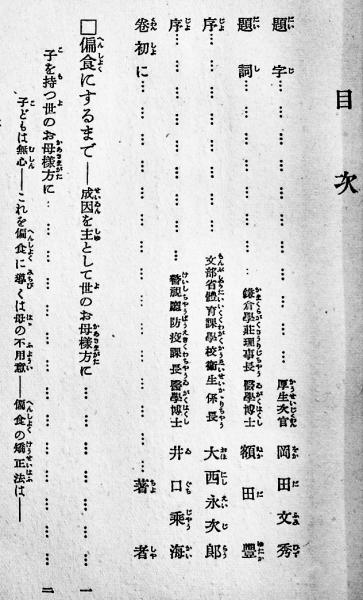 目次
題字……厚生次官 岡田文秀
題詞……鎌倉學莊理事長醫學博士 額田豐
序……文部省體育課學校衞生係長 大西永次郎
序……警視廳防疫課長醫學博士 井口乘海
卷初に……著者
□偏食にするまで——成因を主として世のお母樣方に……一
子を持つ世のお母樣方に……二
子どもは無心——これを偏食に導くは母の不用意——偏食の矯正法は——